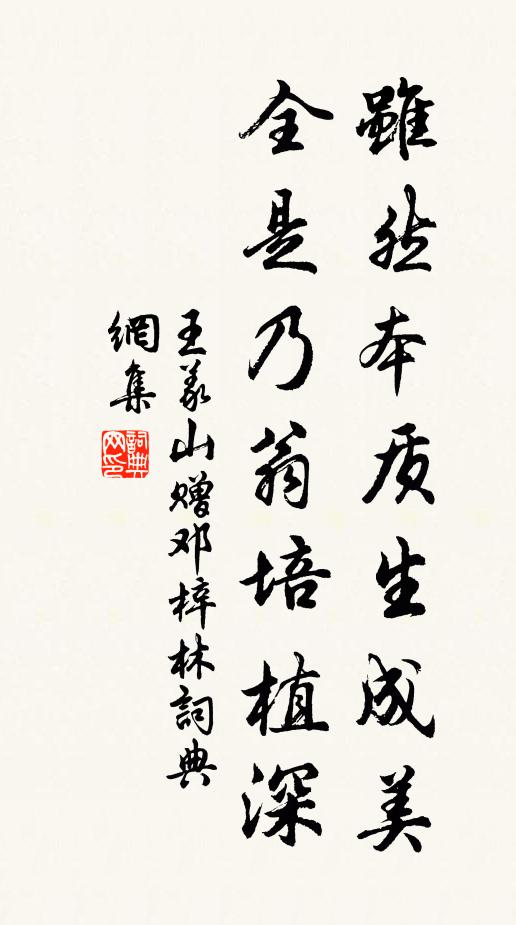 雖然本质生成美
全是乃翁培植深
王义山赠邓梓林詞典
網集
詞典网印